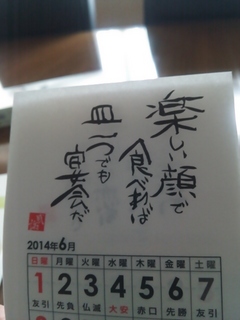 楽しい顔で
食べれば
皿一つでも
宴だ
2014年6月
日曜 月曜 火曜 水曜 木曜 金曜 土曜
1 2 3 4 5 6 7
友引 先負 仏滅 大安 赤口 先勝 友引